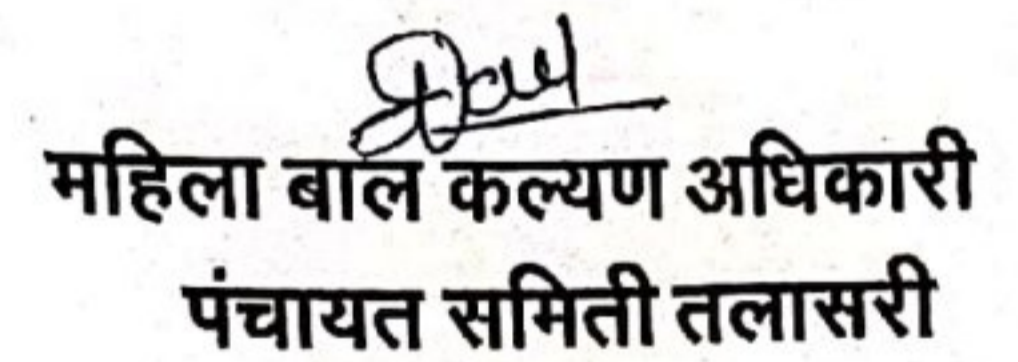 महिला बाल कल्यण अधिकारी
पंचायत समिती तलासरी